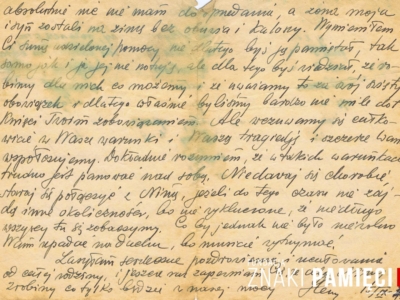 absolutnie nic nie mam do sprzedania, a żona moja
i syn zostali na zimę bez obuwia i kaloszy. Wymieniłem
Ci sumę udzielonej pomocy nie dlatego byś ją pamiętał, tak
samo jak i ja jej nie noruję, ale dla tego byś wiedział, że ro-
bimy dla nich co możemy, i że uważamy to za swój święty
obowiązek i dlatego właśnie byliśmy bardzo nie mile dot-
knięci Twoim zobowiązaniem. Ale wczuwamy się całko-
wicie w Wasze warunki i Waszą tragedję i szczerze Wam
współczujemy. Dokładnie rozumiem, że w takich warunkach
trudno jest panować nad sobą. Niedawaj się chorobie
staraj się połączyć z Niną, jeżeli do tego czasu nie zaj-
dą inne okoliczności, bo nie wykluczone, że niedługo
wszyscy tu się zobaczymy. Co by jednak nie było nie wolno
Wam upadać na duchu, bo musicie wytrzymać.
serdeczne pozdrowienia i ucałowania
od całej rodziny, i jeszcze raz zapewniam
zrobimy co tylko będzie w naszej mocy
ZNAKI PAMIĘCI